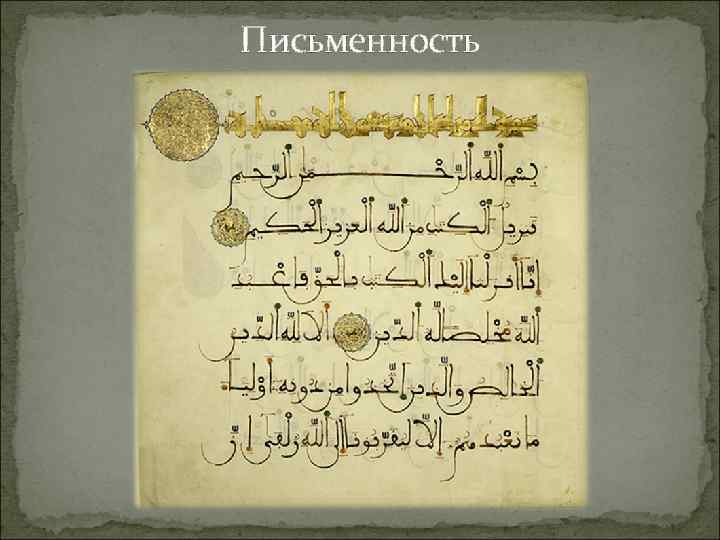 Письменность
بسم الله الرحمن الرحيم
تنزيل الكتب من الله العزيز الحكيم
انا انزلنا اليك الكتب بالحق فاعبد
الله مخلصا له الدين الا لله الدين
الخالص والذين اتخذوا من دونه اوليا
ما نعبدهم الا ليقربونا الى الله زلفى ان